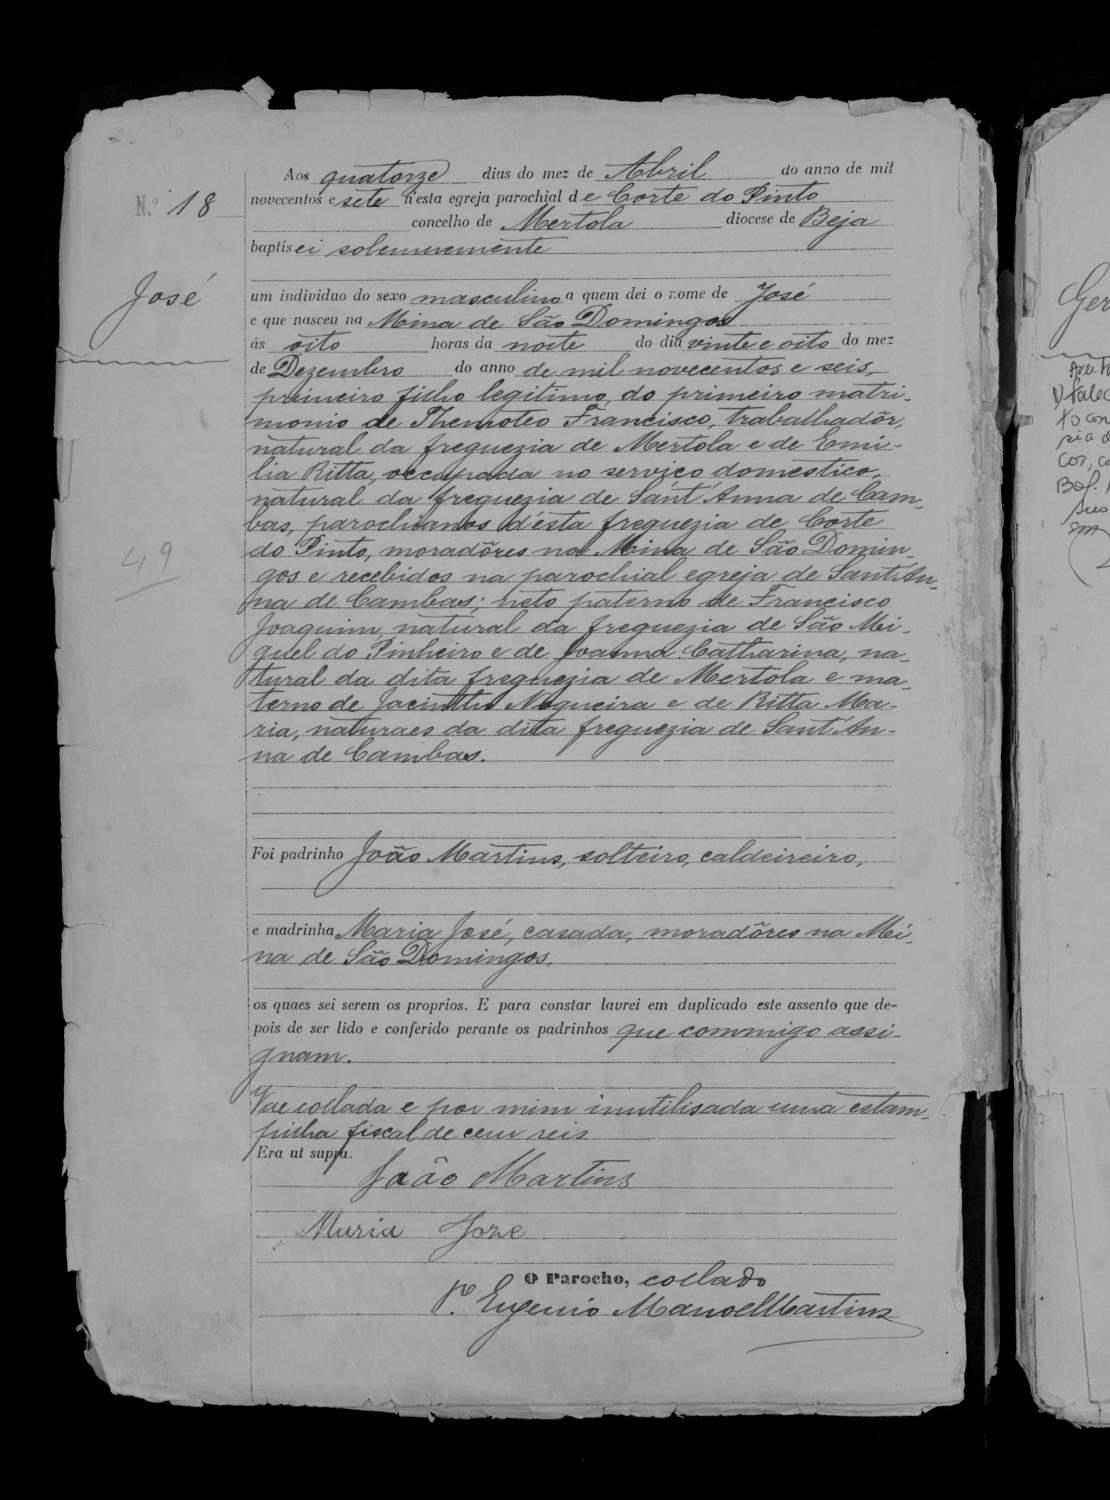 Aos quatorze dias do mez de Abril do anno de mil
N.º 18
novecentos e sete n'esta egreja parochial de Corte do Pinto
concelho de Mertola diocese de Beja
baptisei solemnemente
José
um individuo do sexo masculino a quem dei o nome de José
e que nasceu na Mina de São Domingos
ás oito horas da noite do dia vinte e oito do mez
de Dezembro do anno de mil novecentos e seis,
primeiro filho legitimo, do primeiro matri-
monio de Themoteo Francisco, trabalhadôr,
natural da freguezia de Mertola e de Emi-
lia Ritta, occupada no serviço domestico,
natural da freguezia de Sant'Anna de Cam-
bas, parochianos d'ésta freguezia de Corte
do Pinto, moradôres na Mina de São Domin-
gos e recebidos na parochial egreja de Sant'An-
na de Cambas; neto paterno de Francisco
Joaquim, natural da freguezia de São Mi-
guel do Pinheiro e de Joanna Catharina, na-
tural da dita freguezia de Mertola e ma-
terno de Jacintho Nogueira e de Ritta Ma-
ria, naturaes da dita freguezia de Sant'An-
na de Cambas.
49
Foi padrinho João Martins, solteiro, caldeireiro,
e madrinha Maria José, casada, moradôres na Mi-
na de São Domingos,
os quaes sei serem os proprios. E para constar lavrei em duplicado este assento que de-
pois de ser lido e conferido perante os padrinhos que commigo assi-
gnam.
Vae collada e por mim inutilisada uma estam-
pilha fiscal de cem reis
Era ut supra.
João Martins
Maria Jose
O Parocho, collado
P.e Eugenio Manoel Martins
Ger